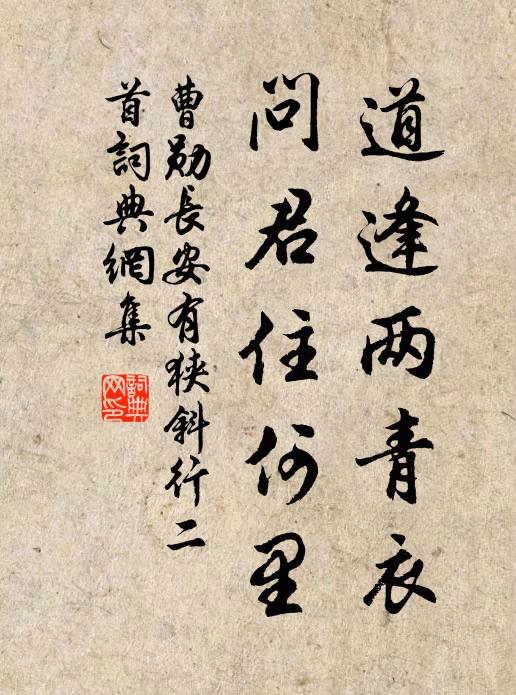 道逢两青衣
问君住何里
曹勋长安有狭斜行二
首词典網集
詞典网印